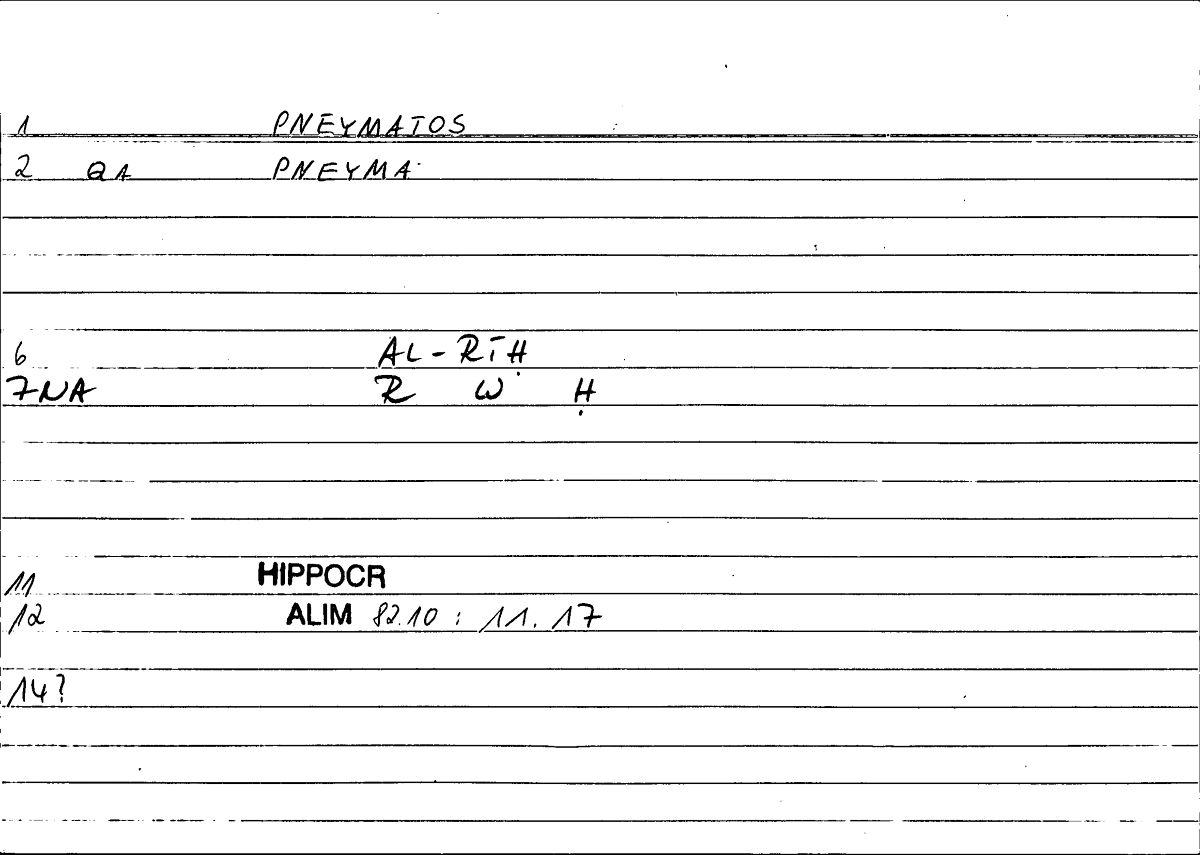 1 PNEYMATOS
2 QA PNEYMA
6 AL-RĪḤ
7NA R W Ḥ
11 HIPPOCR
12 ALIM 82.10 : 11.17
14?